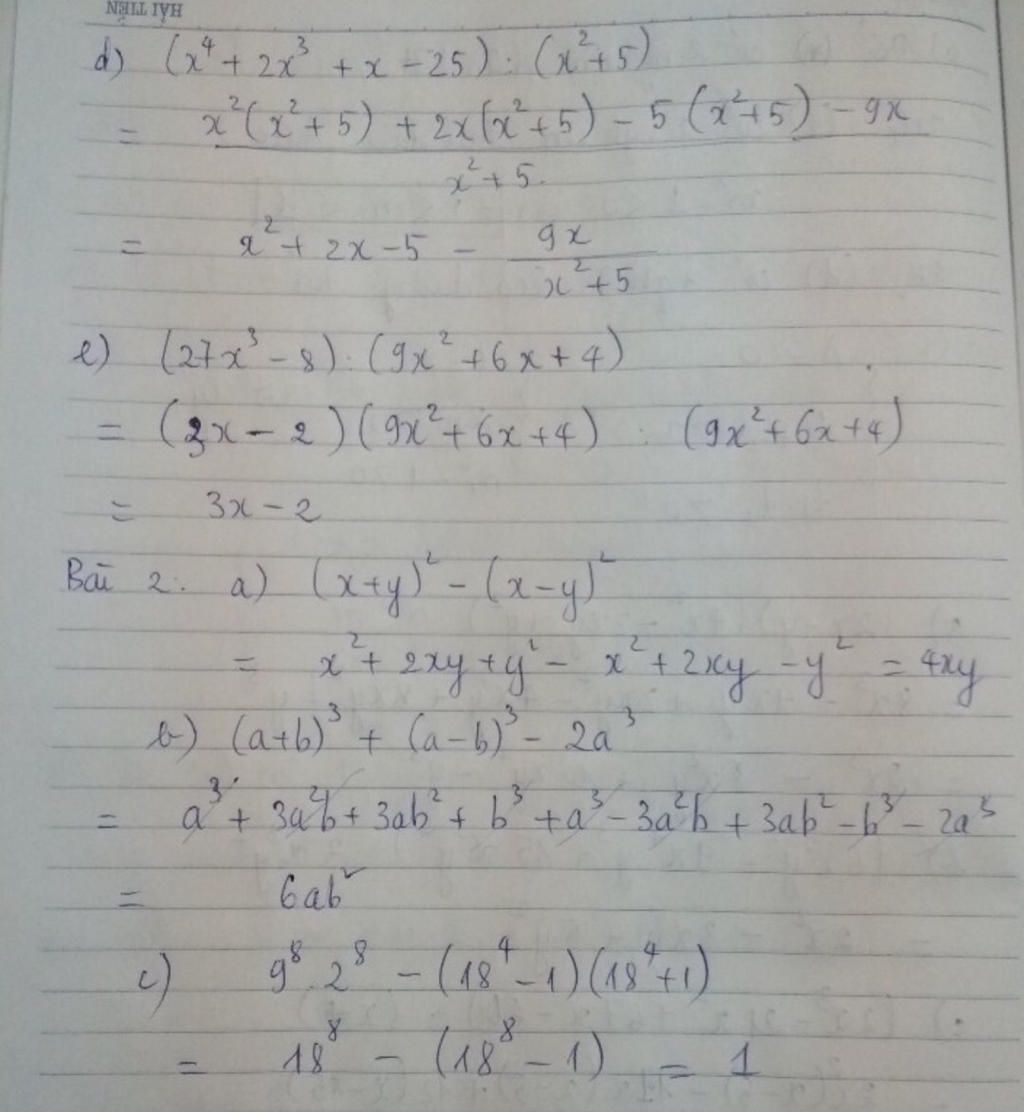 HẢI TIẾN
d) (x⁴ + 2x³ + x - 25) : (x² + 5)
= x²(x² + 5) + 2x(x² + 5) - 5(x² + 5) - 9x
x² + 5.
= x² + 2x - 5 - 9x
x² + 5
e) (27x³ - 8) : (9x² + 6x + 4)
= (3x - 2)(9x² + 6x + 4) : (9x² + 6x + 4)
= 3x - 2
Bài 2: a) (x+y)² - (x-y)²
= x² + 2xy + y² - x² + 2xy - y² = 4xy
b) (a+b)³ + (a-b)³ - 2a³
= a³ + 3a²b + 3ab² + b³ + a³ - 3a²b + 3ab² - b³ - 2a³
= 6ab²
c) 9⁸ . 2⁸ - (18⁴ - 1)(18⁴ + 1)
= 18⁸ - (18⁸ - 1) = 1